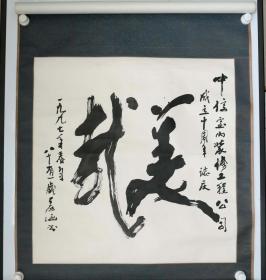 中信室内装修工程公司
成立十周年誌庆
美哉
一九九七年春月
八十有一岁